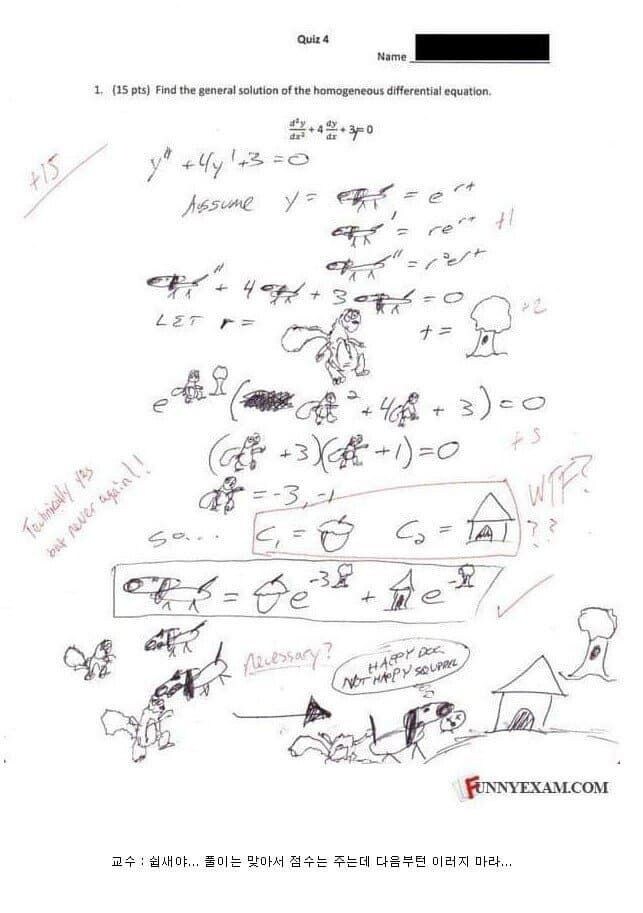 Quiz 4
Name
1. (15 pts) Find the general solution of the homogeneous differential equation.
d²y/dx² + 4 dy/dx + 3y = 0
+15
y'' + 4y' + 3 = 0
ASSUME y = = e^rt
' = re^rt +1
'' = r²e^rt
'' + 4 ' + 3 = 0
LET r = t = +2
e ( ² + 4 + 3) = 0
+5
( + 3)( + 1) = 0
= -3, -1
Technically yes
but never again!!
WTF?
SO... C₁ = C₂ = ??
= e^-3 + e^-
necessary?
HAPPY DOG
NOT HAPPY SQUIRREL
FUNNYEXAM.COM
교수 : 쉽새야... 풀이는 맞아서 점수는 주는데 다음부턴 이러지 마라...